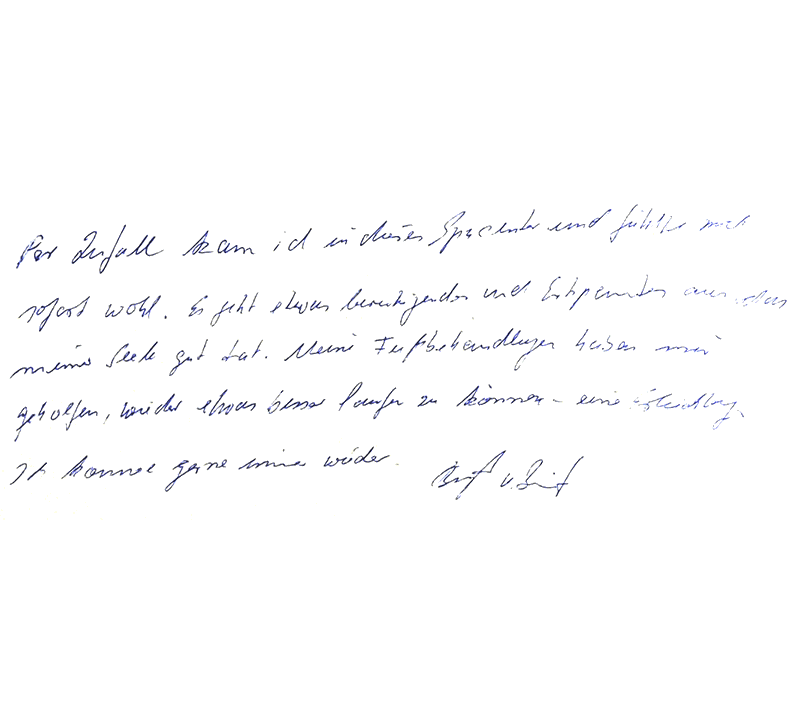 Per Zufall kam ich in dieses Spacenter und fühlte mich
sofort wohl. Es geht etwas beruhigendes und Entspanntes aus, das
meiner Seele gut tat. Meine Fußbehandlungen haben mir
geholfen, wieder etwas besser laufen zu können - eine
Ich komme gerne immer wieder.